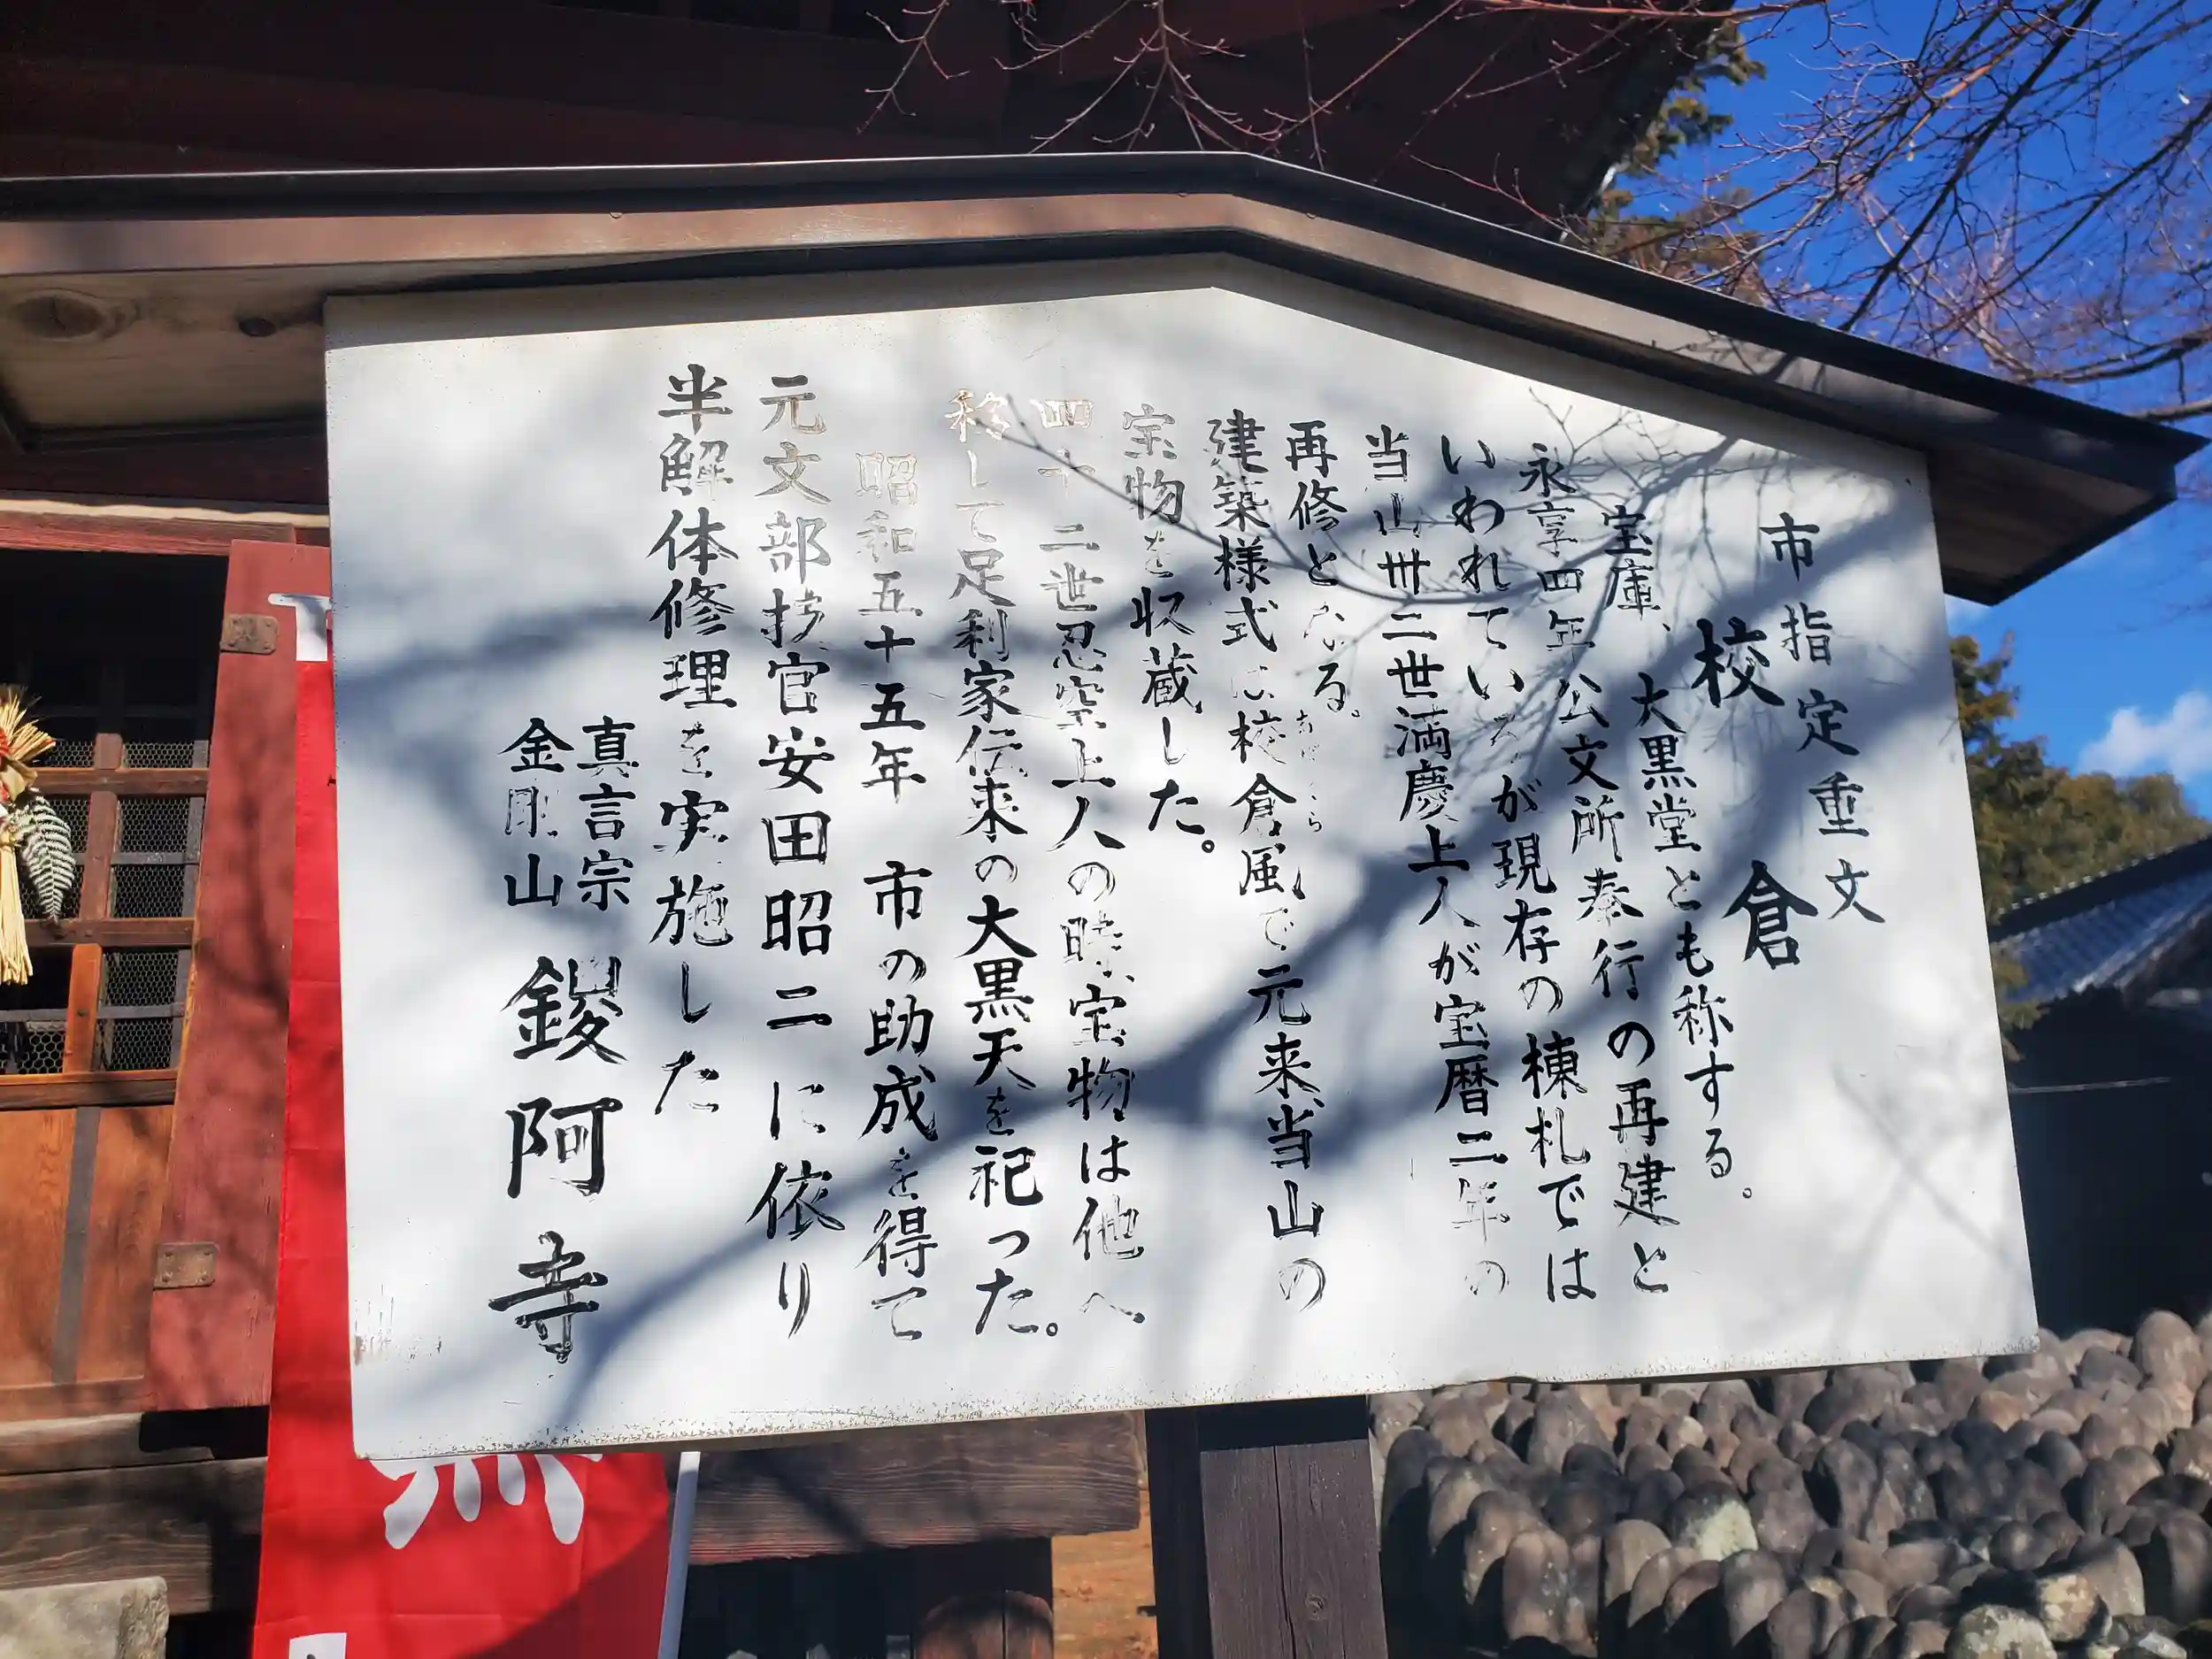 市指定重文
校倉
宝庫、大黒堂とも称する。
永享四年公文所奉行の再建と
いわれているが現存の棟札では
当山卅二世満慶上人が宝暦二年の
再修となる。
あぜくら
建築様式は校倉風で元来当山の
宝物を収蔵した。
四十二世忍空上人の時、宝物は他へ
移して足利家伝来の大黒天を祀った。
昭和五十五年 市の助成を得て
元文部技官安田昭二に依り
半解体修理を実施した
真言宗
金剛山
鑁阿寺